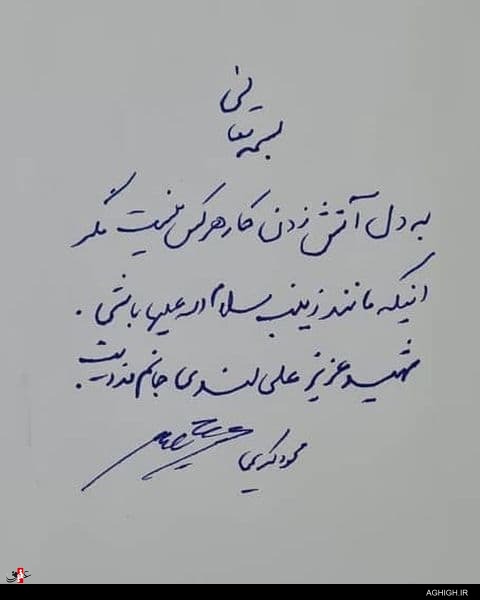 بسمه تعالی
به دل آتش زدن کار هر کس نیست مگر
اینکه مانند زینب سلام اله علیها باشی.
شهید عزیز علی لندی جانم فدایت.
محمود کریمی
عقیق
AGHIGH.IR